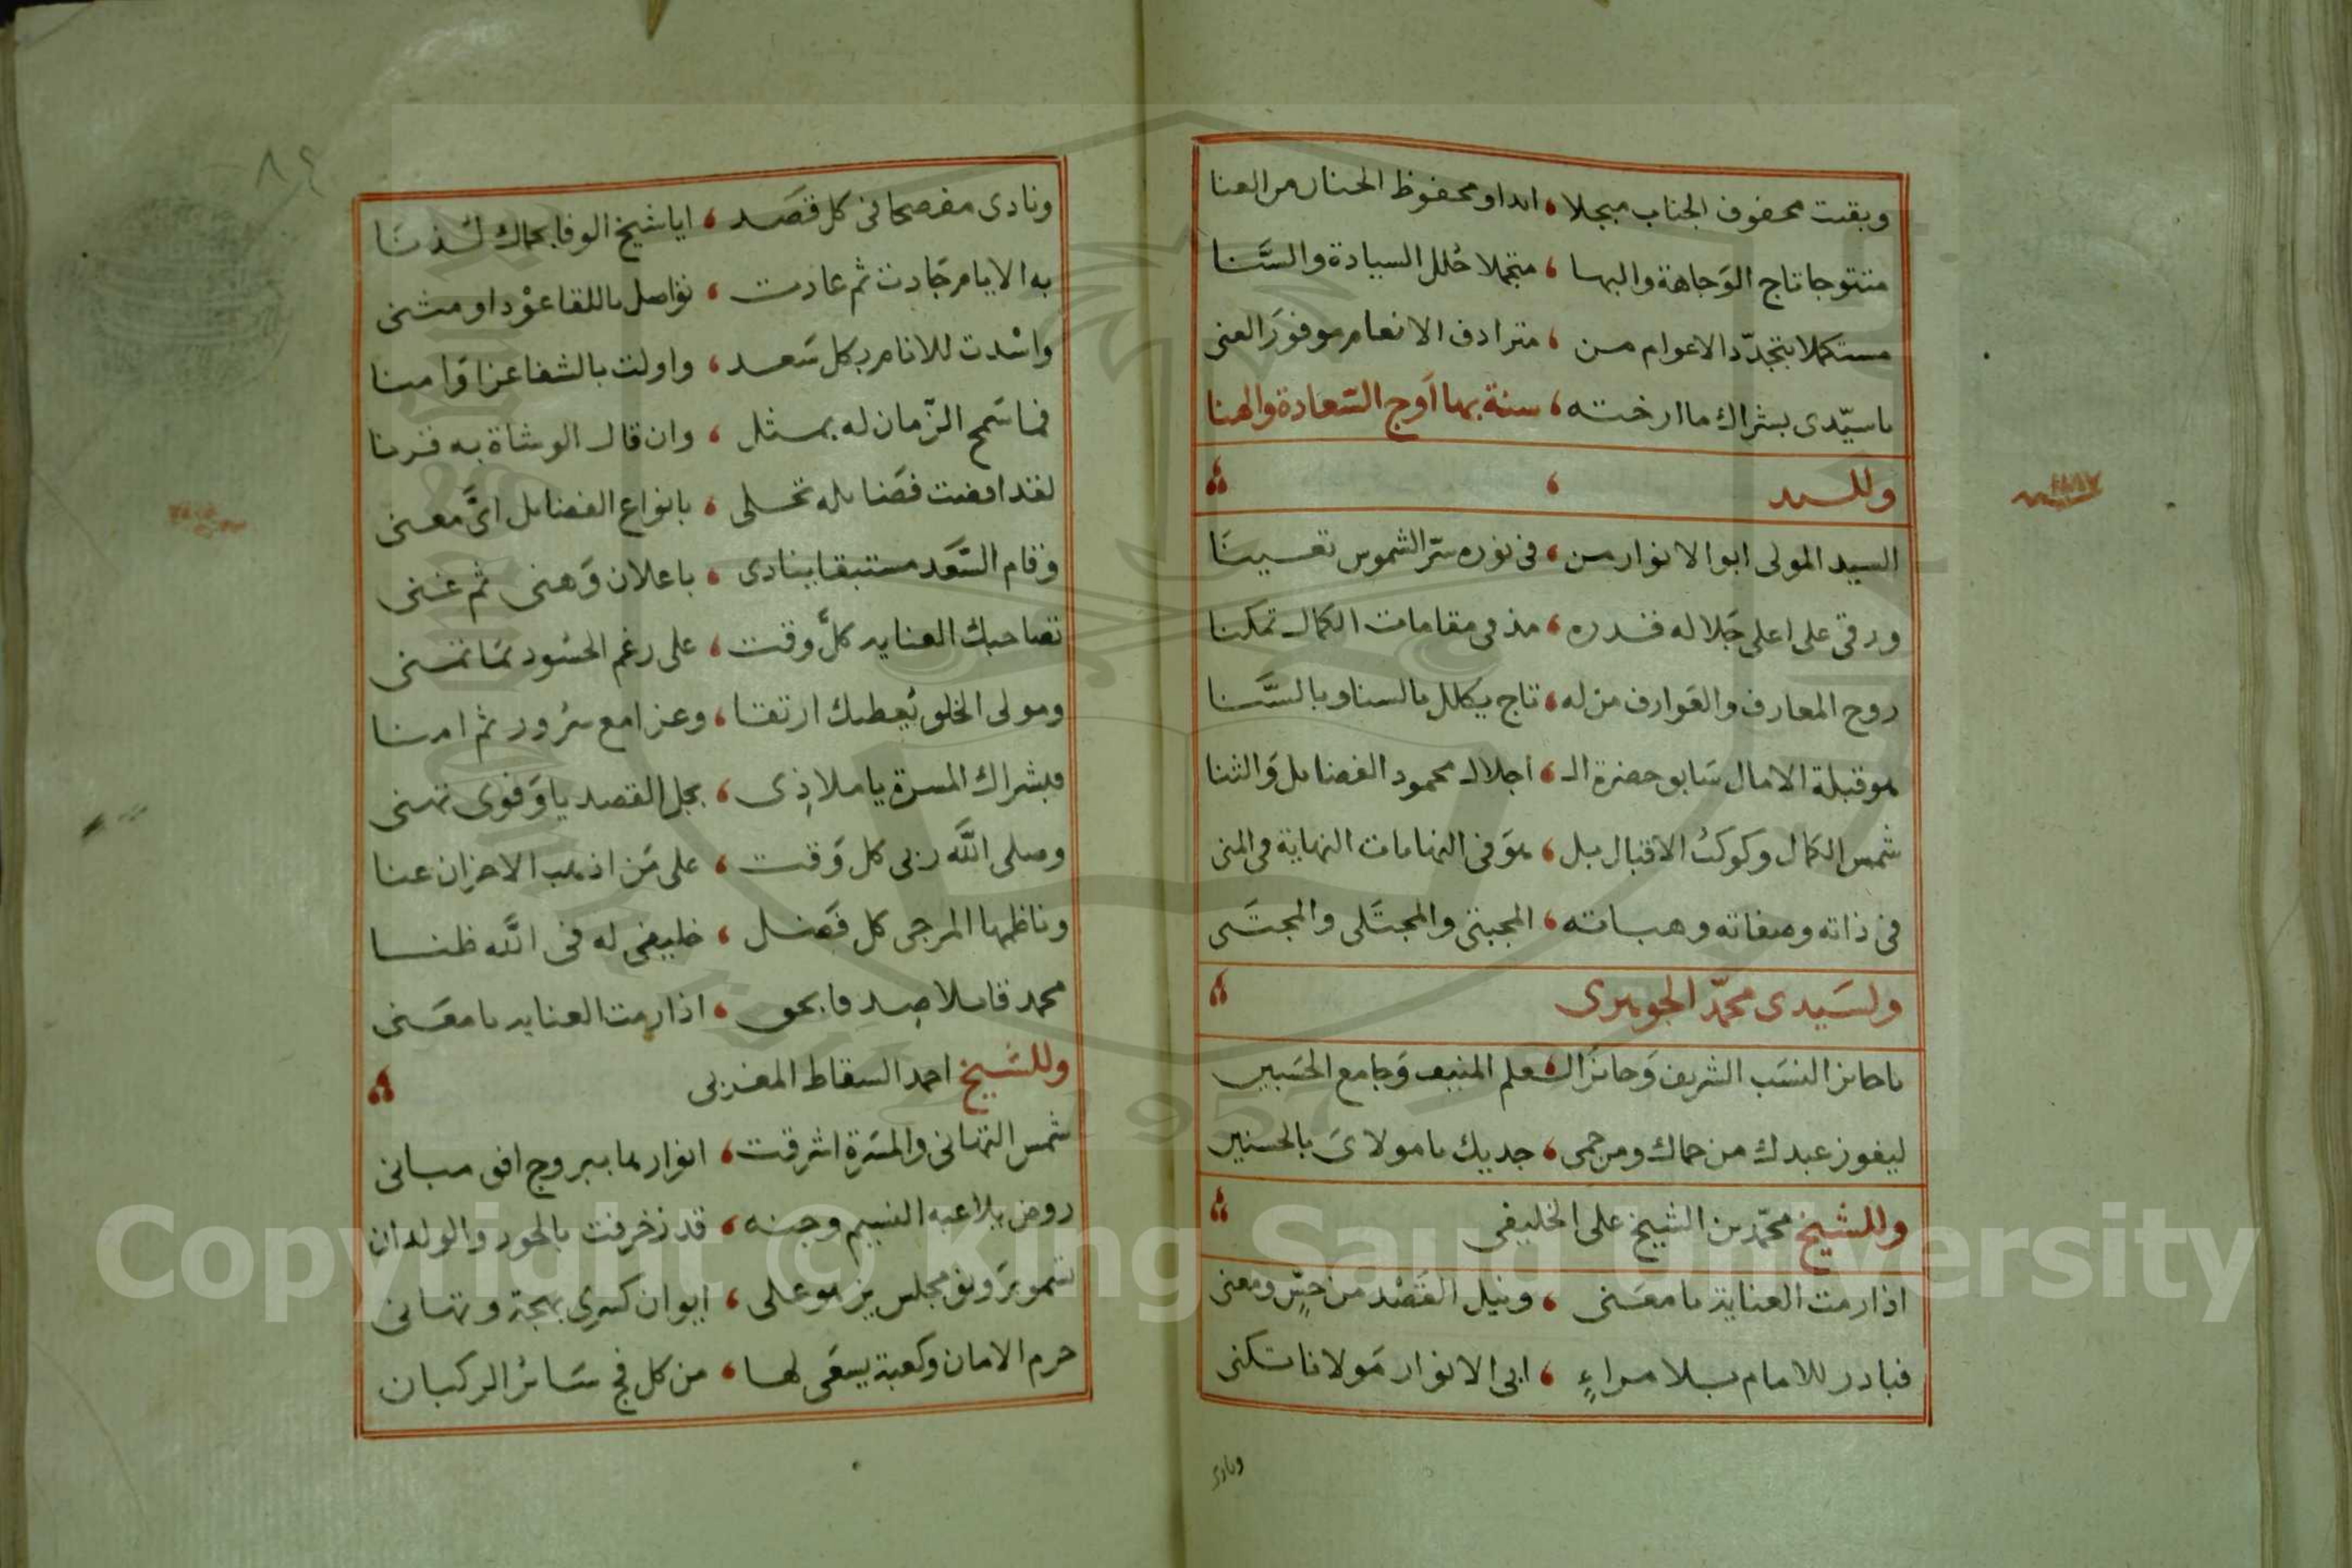 وبقيت محفوف الجناب مبجلا ، ابدا ومحفوظ الجنان من العنا
متتوجا تاج الوجاهة والبها ، متجملا حلل السيادة والسنا
مستكملا بتجدد الاعوام من ، مترادف الانعام موفور الغنى
يا سيدى بشراك ما ارخته ، سنة بها اوج السعادة والهنا
وللسيد
السيد المولى ابو الانوار من ، فى نوره ستر الشموس تعينا
ورقى على اعلى جلاله قدره ، مذ فى مقامات الكمال تمكنا
روح المعارف والعوارف من له ، تاج يكلل بالسنا وبالسنا
هو قبلة الامال سابق حضرة الـ ، اجلال محمود الفضايل والثنا
شمس الكمال وكوكب الاقبال بل ، هو فى النهايات النهاية فى المنى
فى ذاته وصفاته وهباته ، المجتبى والمجتلى والمجتنى
ولسيدى محمد الجوهرى
يا حايز النسب الشريف وحايز الـ ، علم المنيف وجامع الحسبين
ليفوز عبدك من حماك ومن حمى ، جديك يا مولاى بالحسنين
وللشيخ محمد بن الشيخ على الخليفى
اذا رمت العناية يا معنى ، ونيل القصد من حس ومعنى
فبادر للامام بلا مراء ، ابى الانوار مولانا تكنى
ونادى
٨٩
ونادى مفصحا فى كل قصد ، ايا شيخ الوفا بحماك لذنا
به الايام جادت ثم عادت ، تواصل باللقا عودا ومثنى
واسدت للانام بكل سعد ، واولت بالشفا عزا وامنا
فما سمح الزمان له بمثل ، وان قال الوشاة به قرنا
لقد اضت فضايله تحلى ، بانواع الفضايل اى معنى
وقام السعد مستبقا ينادى ، باعلان وهنى ثم غنى
تصاحبك العنايه كل وقت ، على رغم الحسود بما تمنى
ومولى الخلق يعطيك ارتقا ، وعزا مع سرور ثم امنا
فبشراك المسرة يا ملاذى ، بجل القصد يا وفوى تهنى
وصلى الله ربى كل وقت ، على من اذهب الاحزان عنا
وناظمها المرجى كل فضل ، خليفى له فى الله ظنا
محمد قايلا صدقا بحق ، اذا رمت العنايه يا معنى
وللشيخ احمد السقاط المغربى
شمس التهانى والمسرة اشرقت ، انوارها ببروج افق مبانى
روض يلاعبه النسيم وجنه ، قد زخرفت بالحور والولدان
تسمو برونق مجلس يزهو على ، ايوان كسرى بهجة وتهانى
حرم الامان وكعبة يسعى لها ، من كل فج سائر الركبان
Copyright © King Saud University
1957